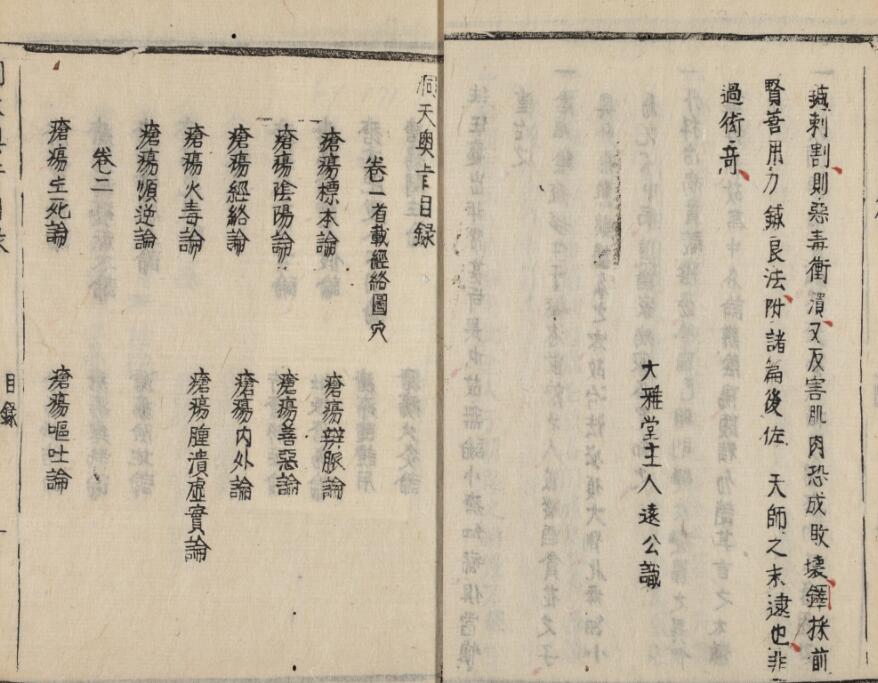 鍼刺割則惡毒衝潰又反害肌肉恐成敗壞鐸採前
賢善用刀鍼良法附諸篇後佐 天師之末逮也非
過衒奇
大雅堂主人遠公識
洞天奧旨目録
卷一首載經絡圖穴
瘡瘍標本論
瘡瘍辨脈論
瘡瘍陰陽論
瘡瘍善惡論
瘡瘍經絡論
瘡瘍内外論
瘡瘍火毒論
瘡瘍腫潰虛實論
瘡瘍順逆論
卷二
瘡瘍生死論
瘡瘍嘔吐論
目録
一